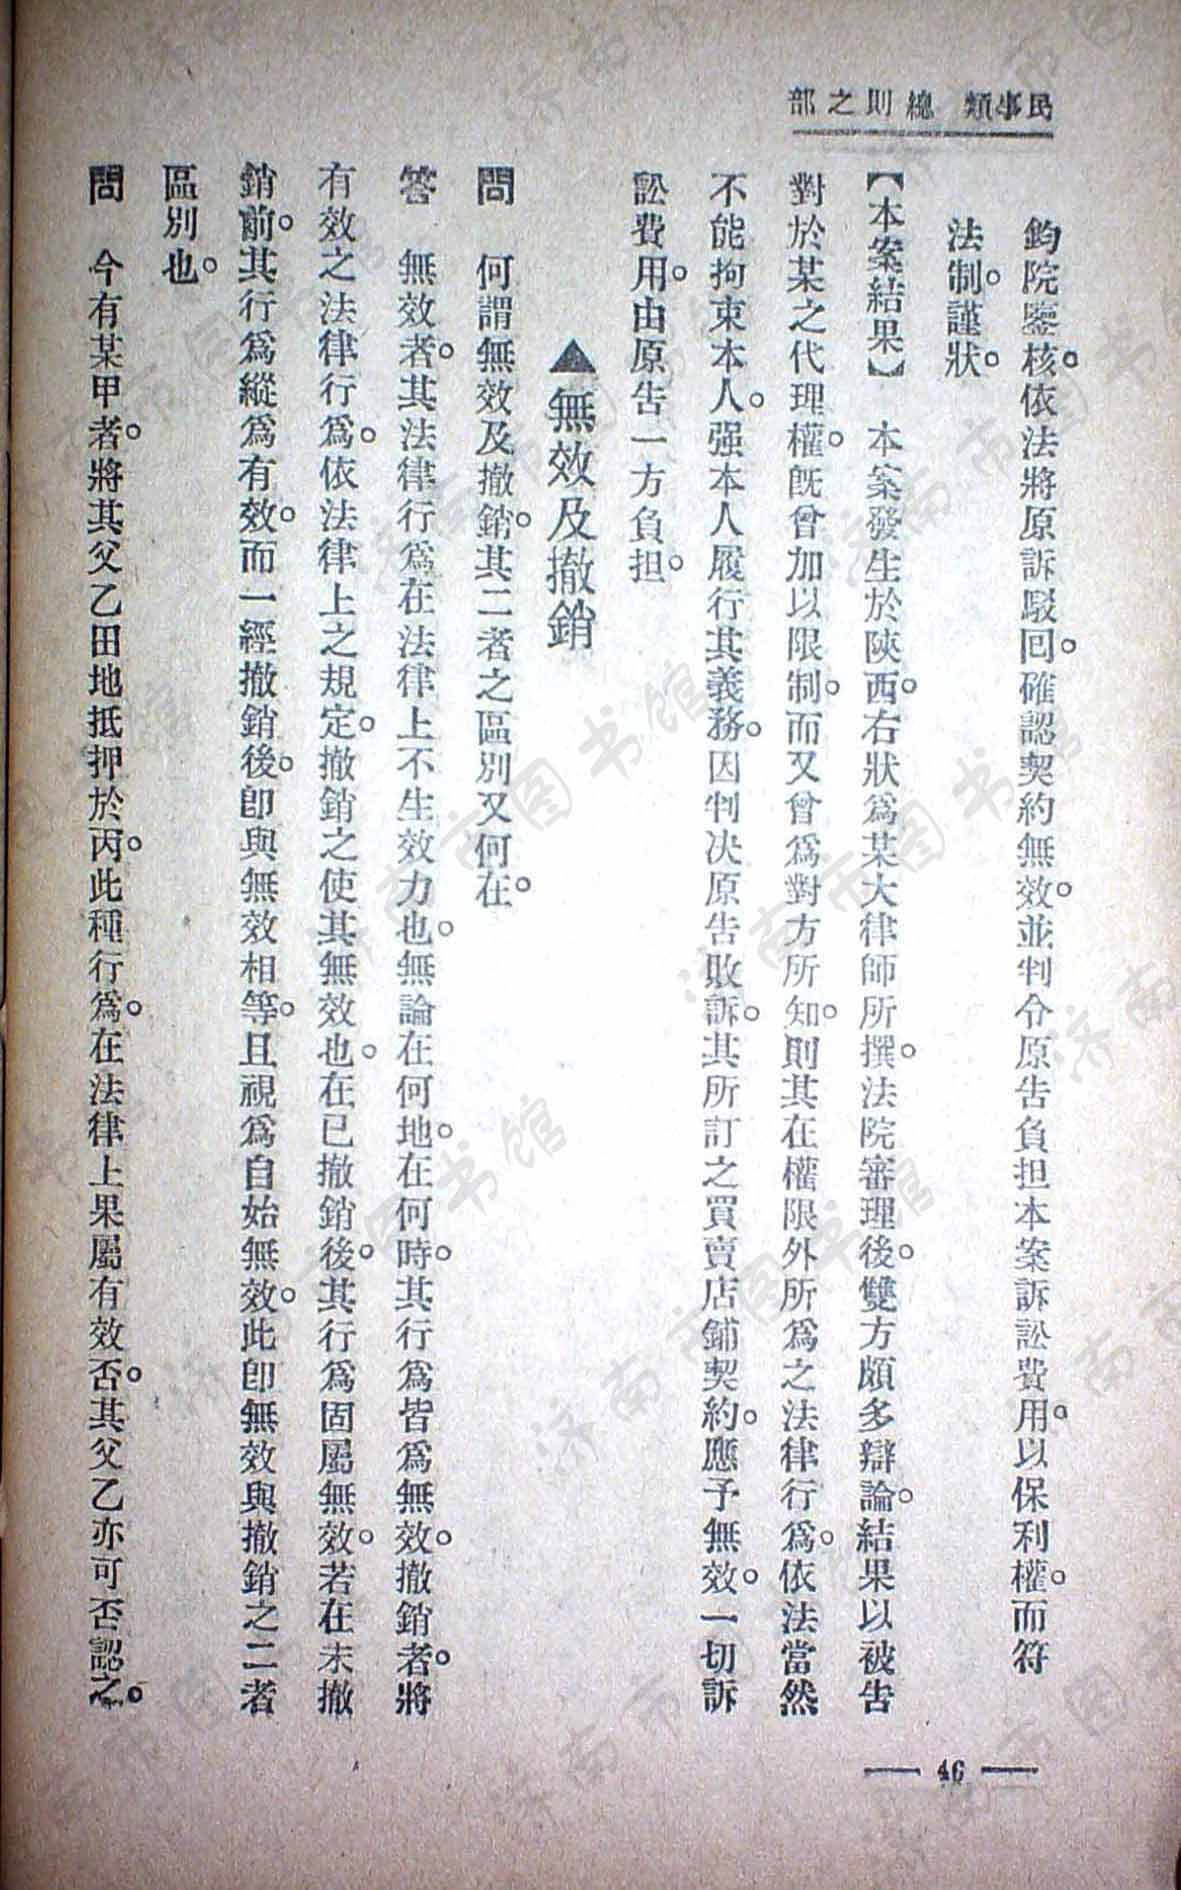 民事類 總則之部
鈞院鑒核。依法將原訴駁回。確認契約無效。並判令原告負担本案訴訟費用。以保利權。而符
法制。謹狀。
【本案結果】 本案發生於陝西。右狀爲某大律師所撰。法院審理後。雙方頗多辯論。結果以被告
對於某之代理權。旣曾加以限制。而又曾爲對方所知。則其在權限外所爲之法律行爲。依法當然
不能拘束本人。强本人履行其義務。因判决原告敗訴。其所訂之買賣店鋪契約。應予無效。一切訴
訟費用。由原告一方負担。
▲無效及撤銷
問 何謂無效及撤銷。其二者之區別又何在。
答 無效者。其法律行爲在法律上不生效力也。無論在何地。在何時。其行爲皆爲無效。撤銷者。將
有效之法律行爲。依法律上之規定。撤銷之使其無效也。在已撤銷後。其行爲固屬無效。若在未撤
銷前。其行爲縱爲有效。而一經撤銷後。卽與無效相等。且視爲自始無效。此卽無效與撤銷之二者
區別也。
問 今有某甲者。將其父乙田地抵押於丙。此種行爲。在法律上果屬有效否。其父乙亦可否認之。
46
济南市图书馆